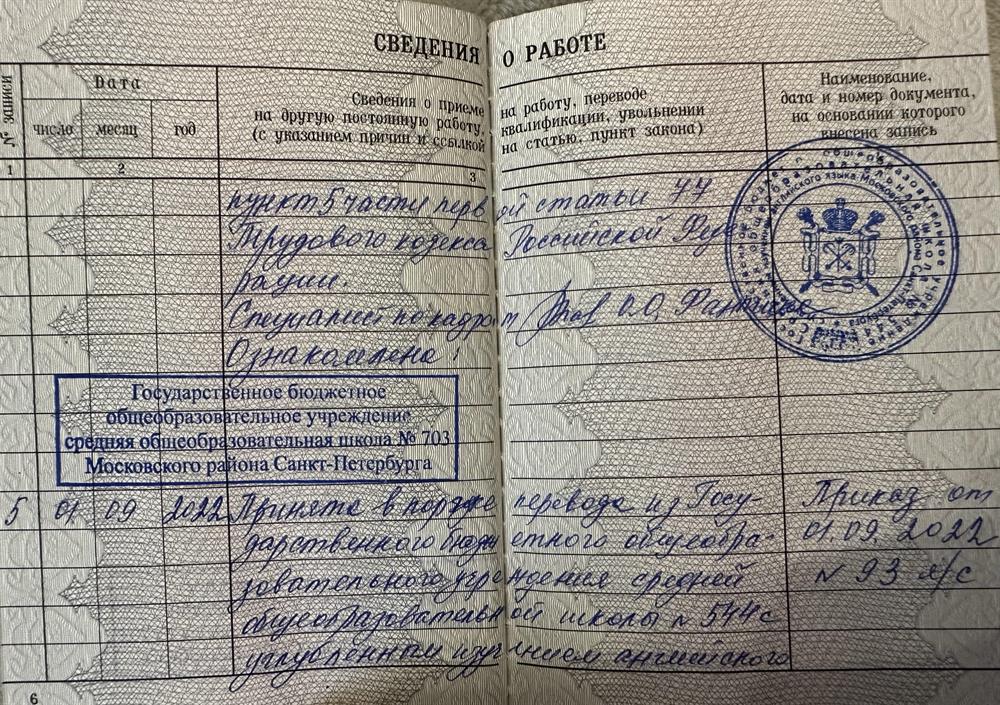 СВЕДЕНИЯ О РАБОТЕ
№ записи
Дата
число месяц год
Сведения о приеме на работу, переводе
на другую постоянную работу, квалификации, увольнении
(с указанием причин и ссылкой на статью, пункт закона)
Наименование,
дата и номер документа,
на основании которого
внесена запись
1 2 3
пункт 5 части первой статьи 77
Трудового кодекса Российской Феде
рации.
Специалист по кадрам О.О.
Ознакомлена:
Государственное бюджетное
общеобразовательное учреждение
средняя общеобразовательная школа № 703
Московского района Санкт-Петербурга
5 01 09 2022 Принята в порядке перевода из Госу- Приказ от
дарственного бюджетного общеобра- 01.09.2022
зовательного учреждения средней № 93 л/с
общеобразовательной школы № 544 с
углубленным изучением английского
6